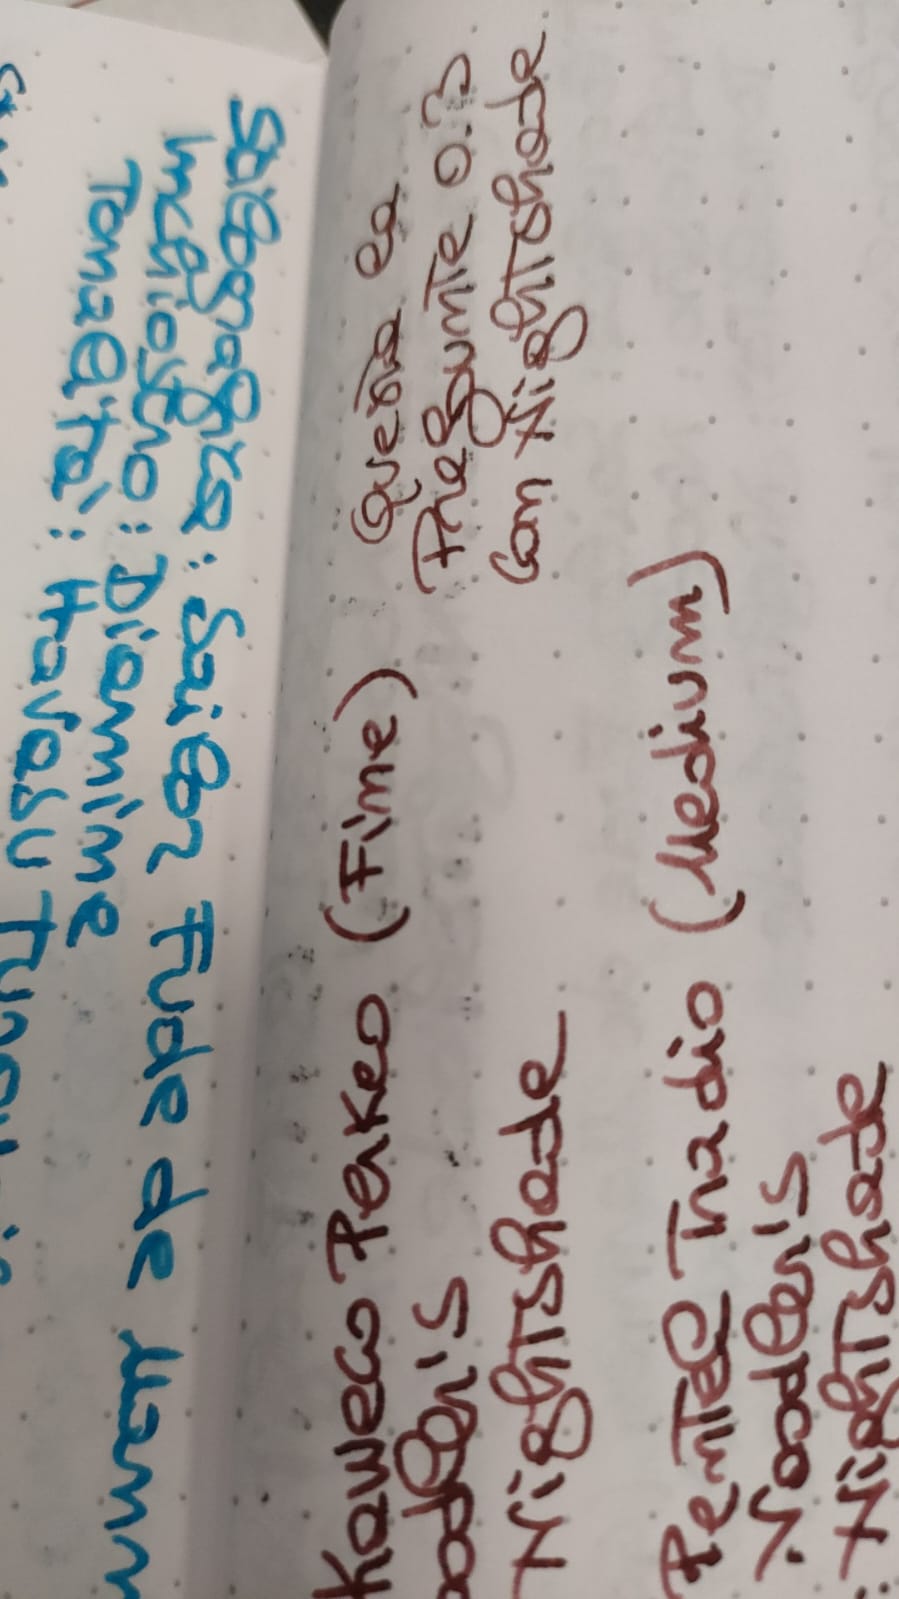 Stilografica: Sailor Fude de Mann
Inchiostro: Diamine
Tonalità: Havasu
Kaweco Perkeo (Fine)
oodler's
Nightshade
Questa la
0.3
con Nightshade
Pentel Tradio (Medium)
Noodler's
Nightshade